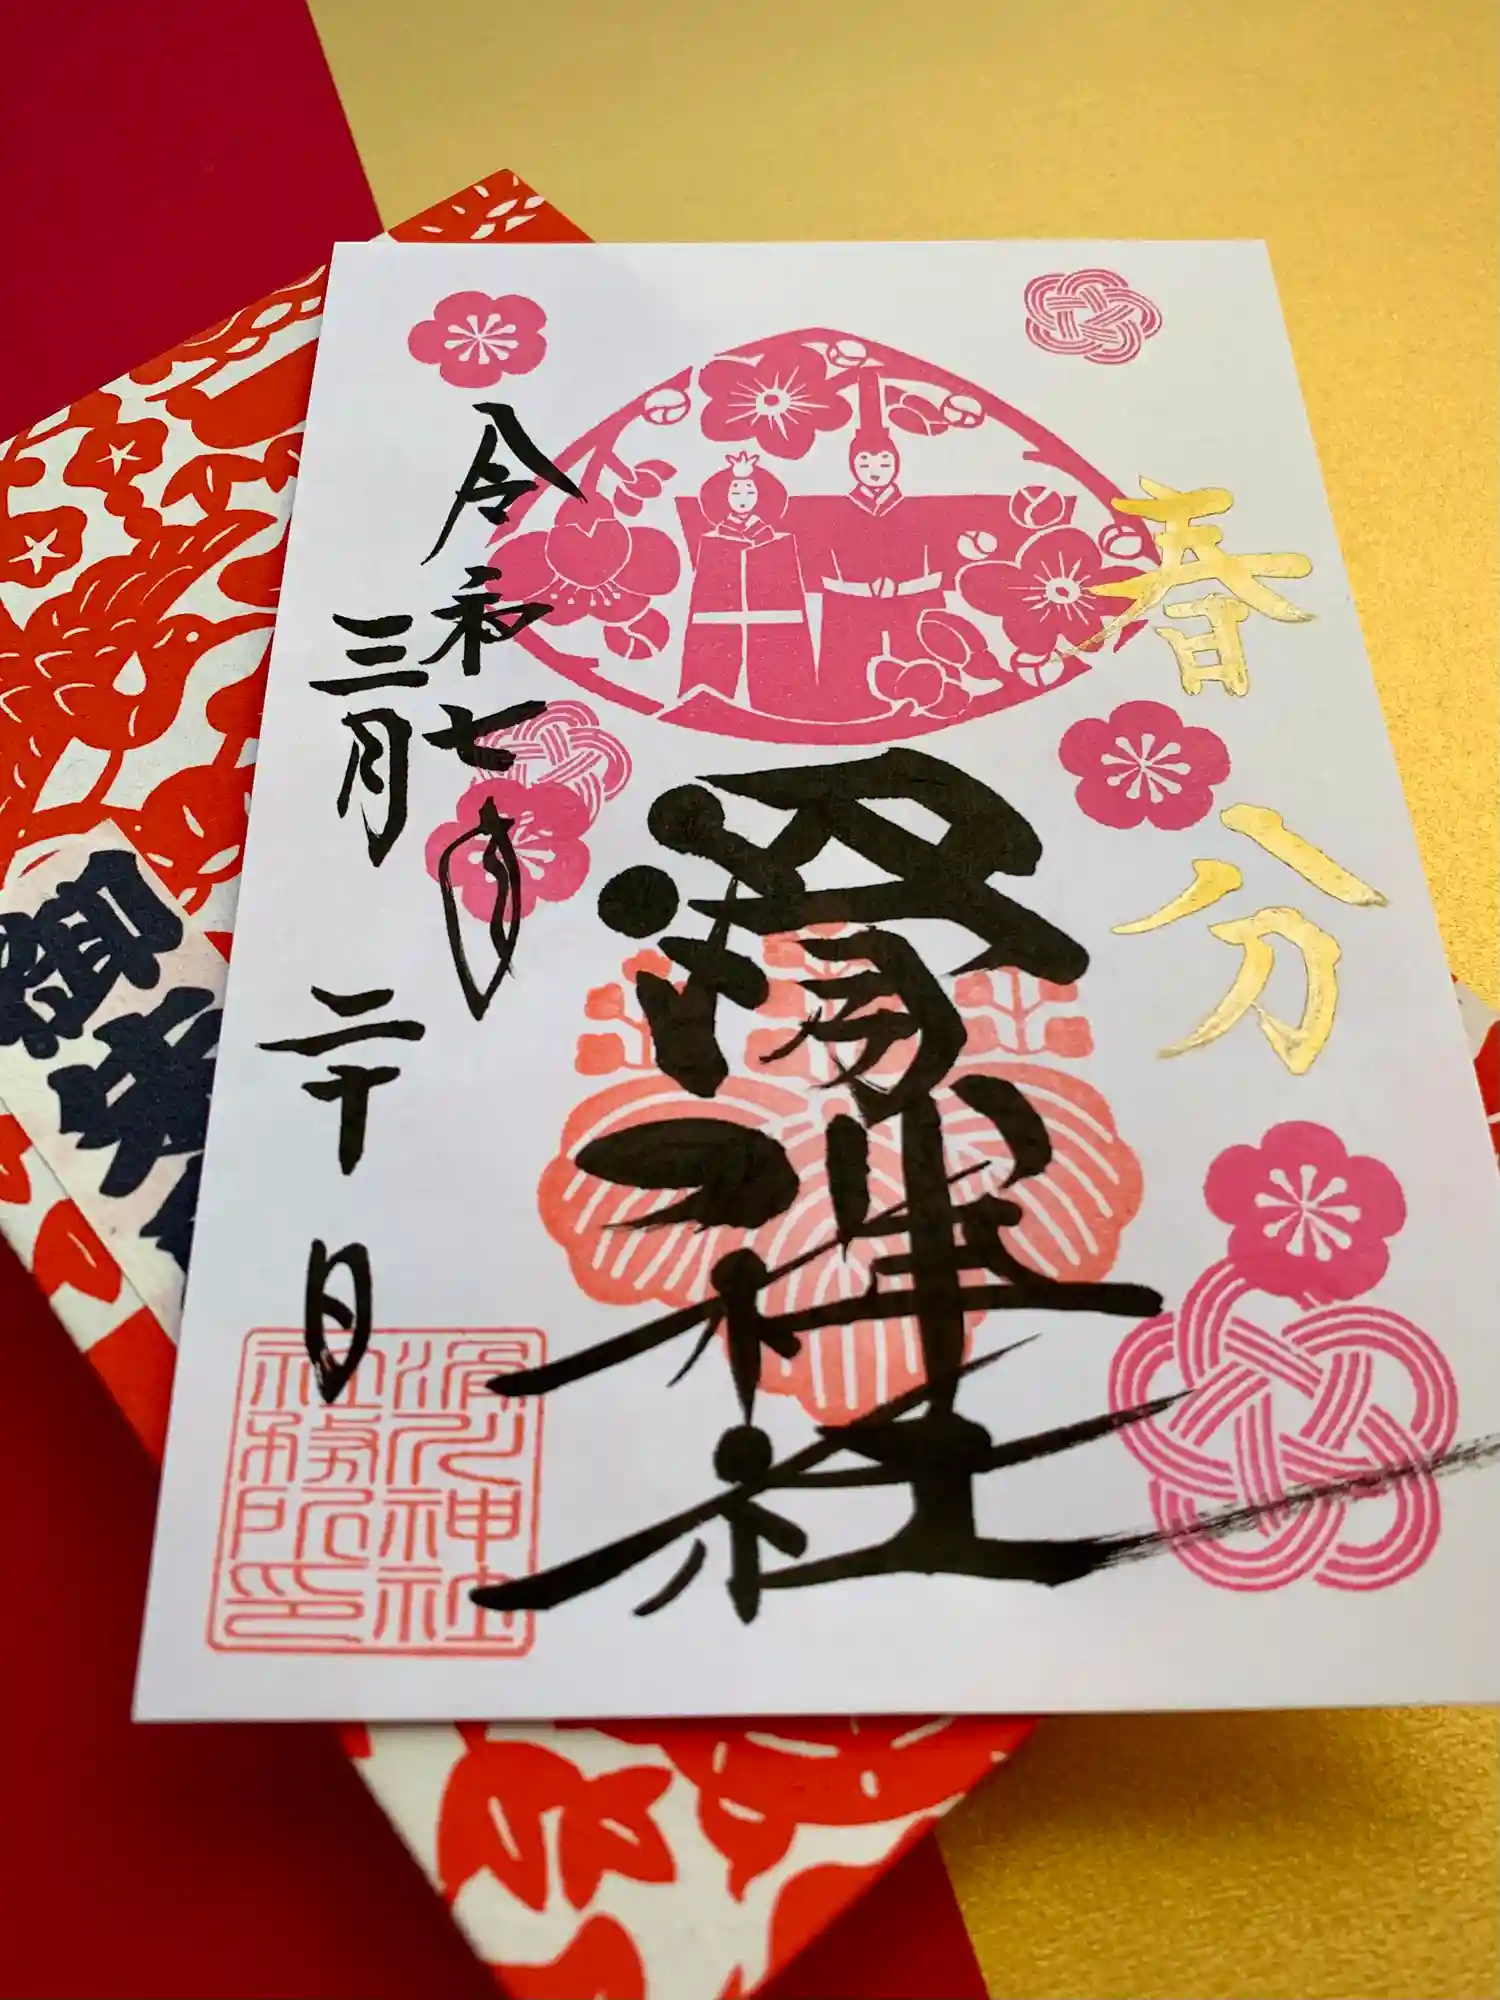 春分
滑川神社
令和七年
三月二十日
滑川神社
社務所印